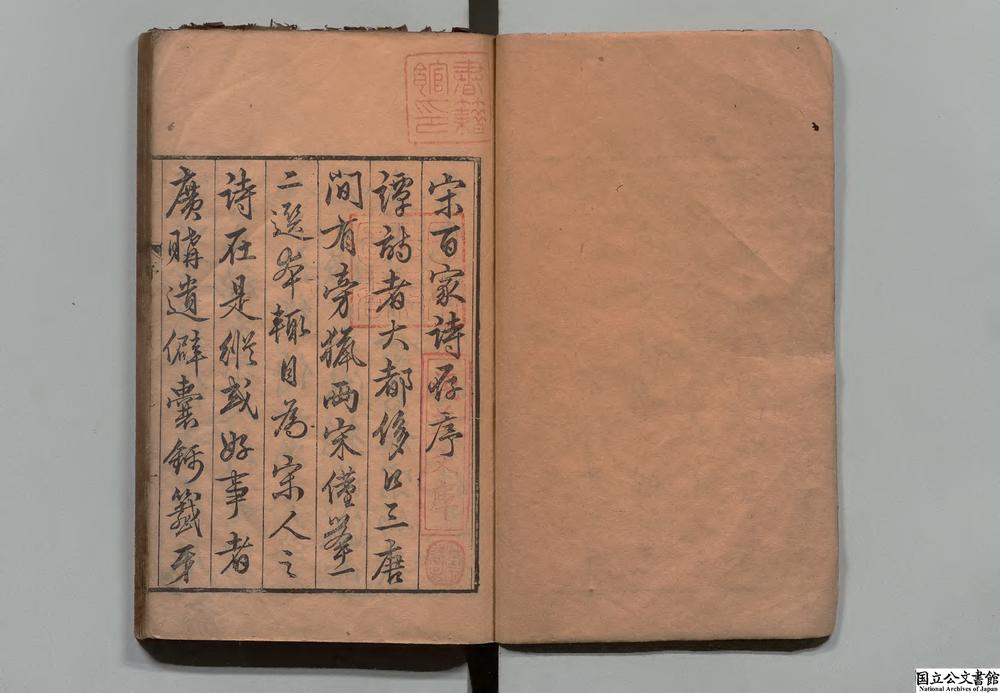 宋百家詩存序
譚詩者大都侈口三唐
間有旁獵兩宋僅舉一
二選本輒目為宋人之
詩在是縱或好事者
廣購遺僻囊錦籤牙
書籍館印
文庫
国立公文書館
National Archives of Japan